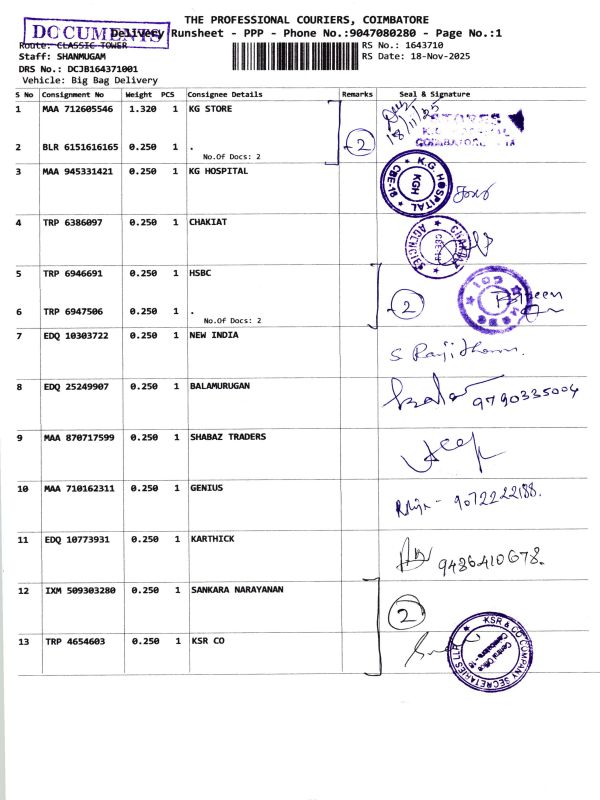 THE PROFESSIONAL COURIERS, COIMBATORE
DOCUMENTS
Delivery Runsheet - PPP - Phone No.:9047080280 - Page No.:1
Route: CLASSIC TOWER
RS No.: 1643710
Staff: SHANMUGAM
RS Date: 18-Nov-2025
DRS No.: DCJB164371001
Vehicle: Big Bag Delivery
S No Consignment No Weight PCS Consignee Details Remarks Seal & Signature
1 MAA 712605546 1.320 1 KG STORE
18/11/25
STORES
2 BLR 6151616165 0.250 1 .
No.Of Docs: 2
2
3 MAA 945331421 0.250 1 KG HOSPITAL
K.G. HOSPITAL
KGH
CBE-18
4 TRP 6386097 0.250 1 CHAKIAT
CHAKIAT
AGENCIES
5 TRP 6946691 0.250 1 HSBC
6 TRP 6947506 0.250 1 .
No.Of Docs: 2
2
7 EDQ 10303722 0.250 1 NEW INDIA
8 EDQ 25249907 0.250 1 BALAMURUGAN
9790335004
9 MAA 870717599 0.250 1 SHABAZ TRADERS
10 MAA 710162311 0.250 1 GENIUS
9072222188.
11 EDQ 10773931 0.250 1 KARTHICK
9486410678.
12 IXM 509303280 0.250 1 SANKARA NARAYANAN
2
13 TRP 4654603 0.250 1 KSR CO
KSR & CO COMPANY SECRETARIES LLP
Central Office
Coimbatore - 18